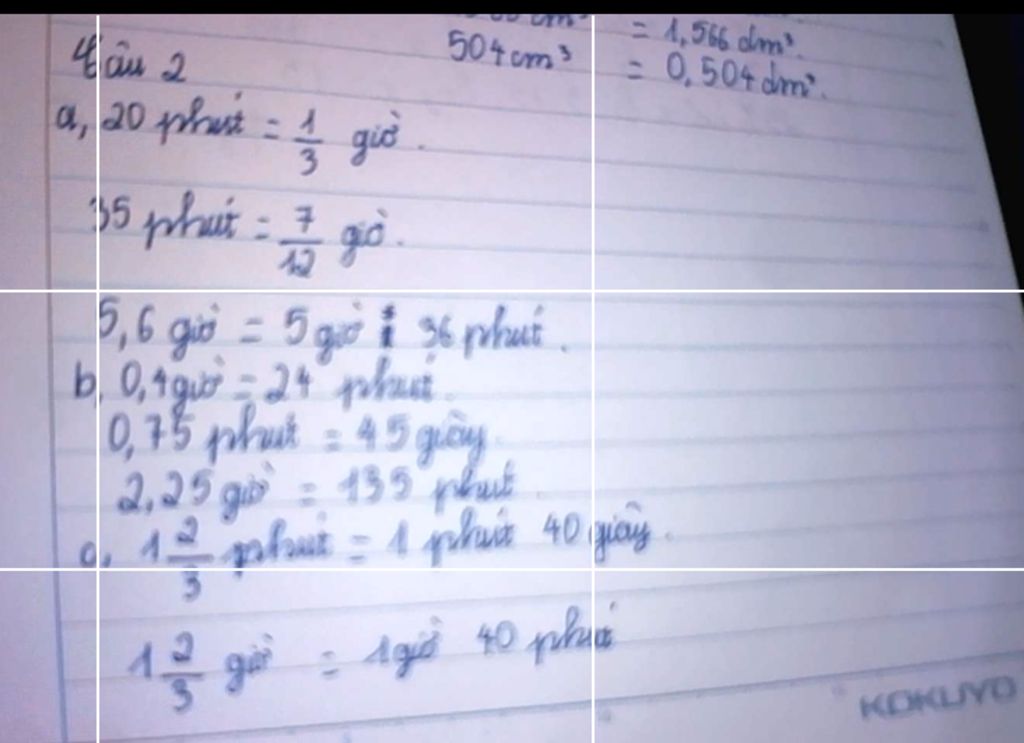 504 cm³ = 1,566 dm³.
= 0,504 dm³.
Câu 2
a, 20 phút = 1/3 giờ.
35 phút = 7/12 giờ.
5,6 giờ = 5 giờ 36 phút.
b, 0,4 giờ = 24 phút.
0,75 phút = 45 giây
2,25 giờ = 135 phút.
c, 1 2/3 phút = 1 phút 40 giây.
1 2/3 giờ = 1 giờ 40 phút
KOKUYO